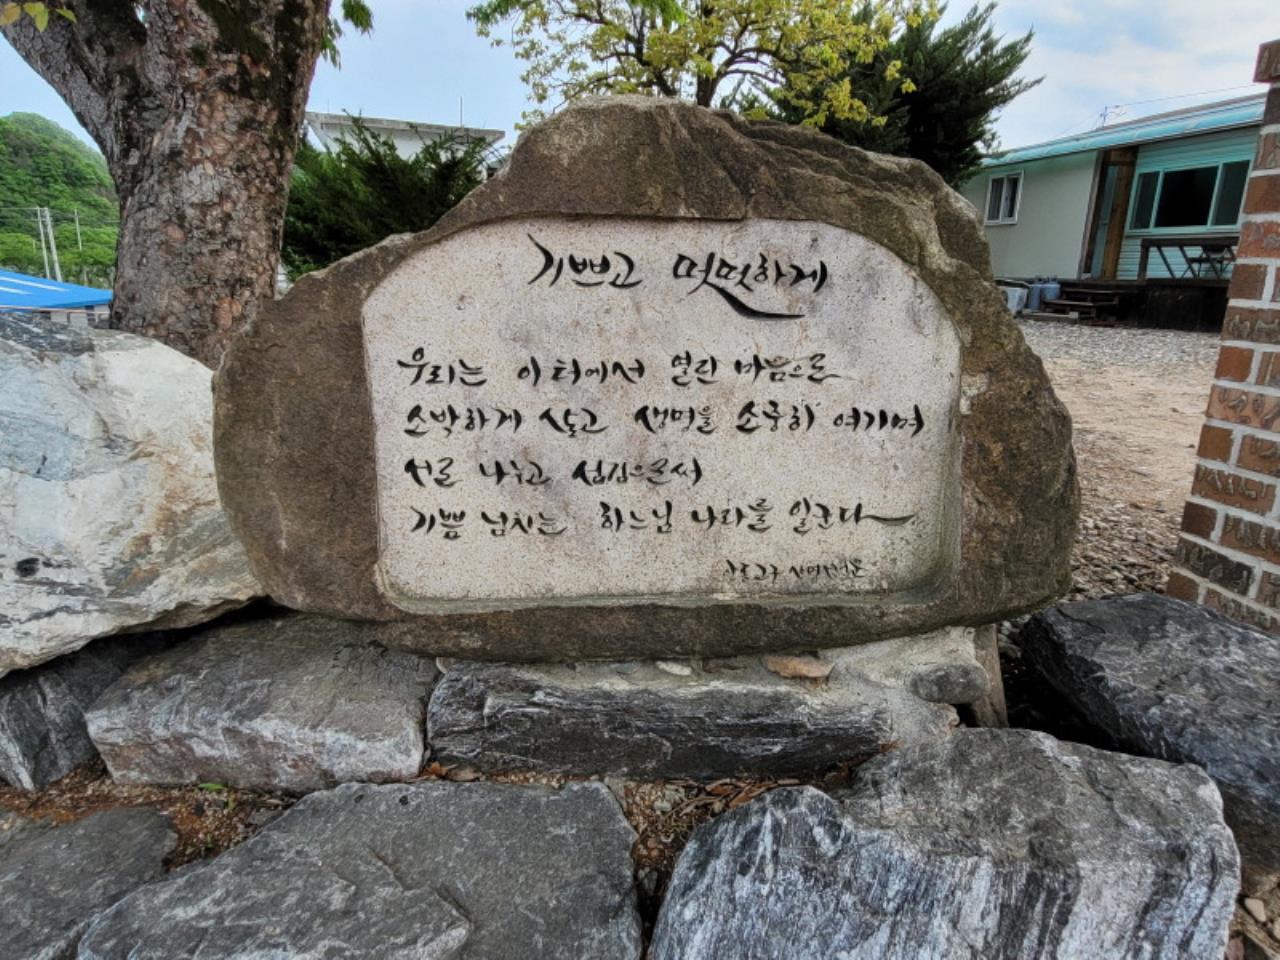 기쁘고 떳떳하게
우리는 이 터에서 열린 마음으로
소박하게 살고 생명을 소중히 여기며
서로 나누고 섬김으로써
기쁨 넘치는 하느님 나라를 일군다